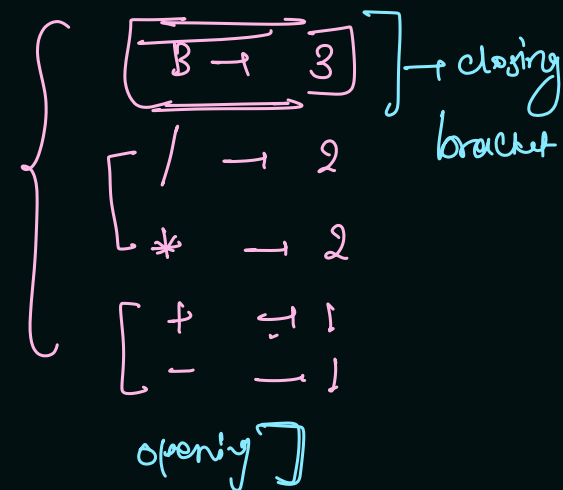 B → 3
→ closing
bracket
/ → 2
* → 2
+ → 1
- → 1
opening